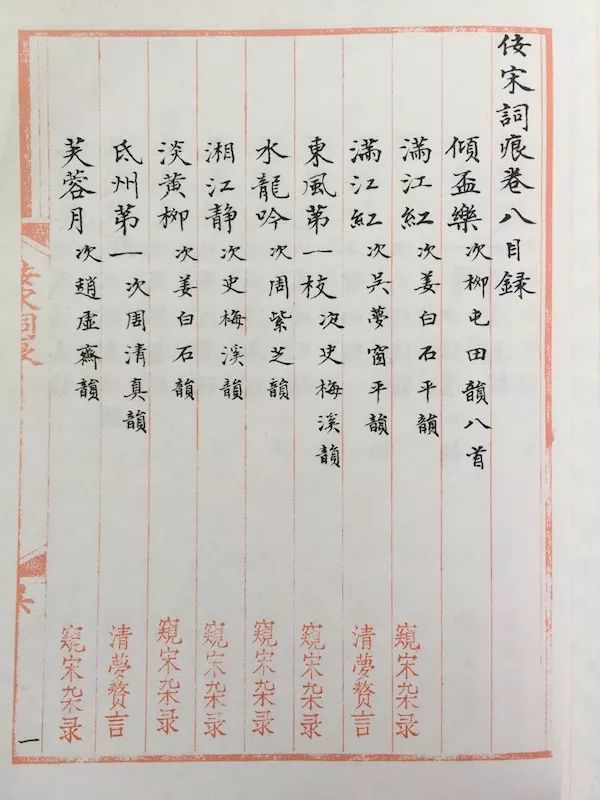 佞宋詞痕卷八目録
傾盃樂次柳屯田韻八首
滿江紅次姜白石平韻 窺宋杂录
滿江紅次吳夢窗平韻 清夢赘言
東風第一枝次史梅溪韻 窺宋杂录
水龍吟次周紫芝韻 窺宋杂录
湘江静次史梅溪韻 窺宋杂录
淡黄柳次姜白石韻 窺宋杂录
氐州第一次周清真韻 清夢赘言
芙蓉月次趙虚齋韻 窺宋杂录
一